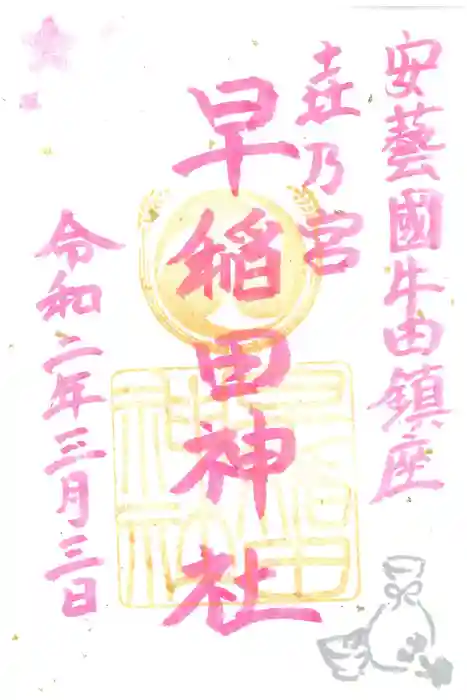 安藝國牛田鎮座
壵乃宮
早稲田神社
令和二年三月三日